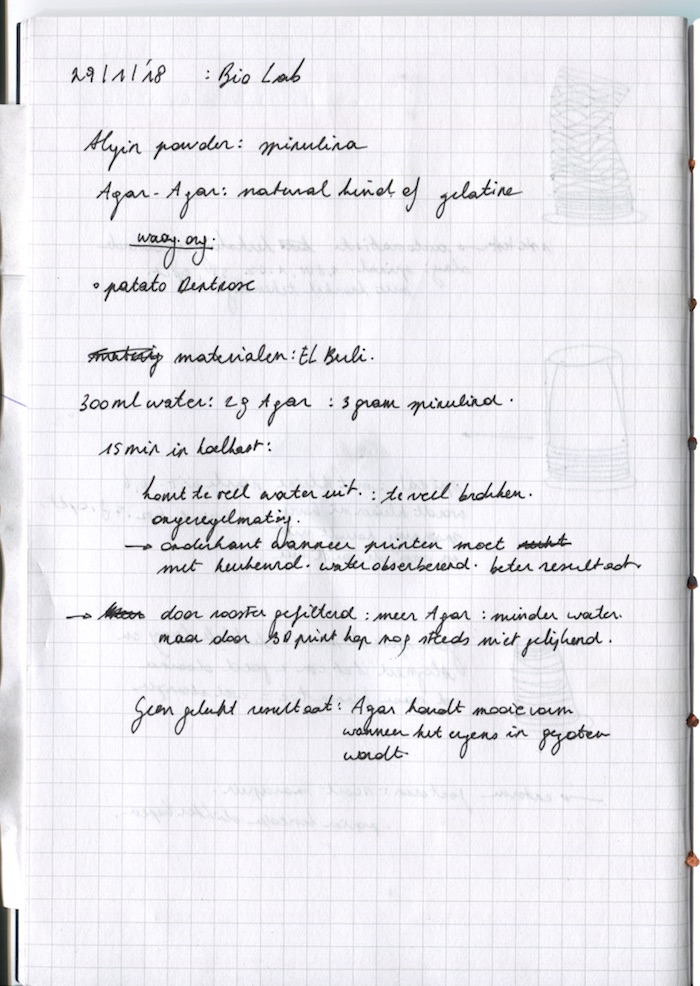 29/1/'18 : Bio Lab
Algin powder: spirulina
Agar-Agar: natural kind of gelatine
waag.org.
° patato Dextrose
materialen: EL Buli.
300ml water: 2g Agar : 3 gram spirulina.
15 min in koelkast:
komt te veel water uit. : te veel brokken.
onregelmatig.
→ onderkant wanneer printen moet
met keukenrol. waterobserberend. beter resultaat.
→ door rooster gefilterd : meer Agar : minder water.
maar door 3D print kop nog steeds niet gelijkend.
Geen gelukt resultaat: Agar houdt mooie vorm
wanneer het ergens in gegoten
wordt